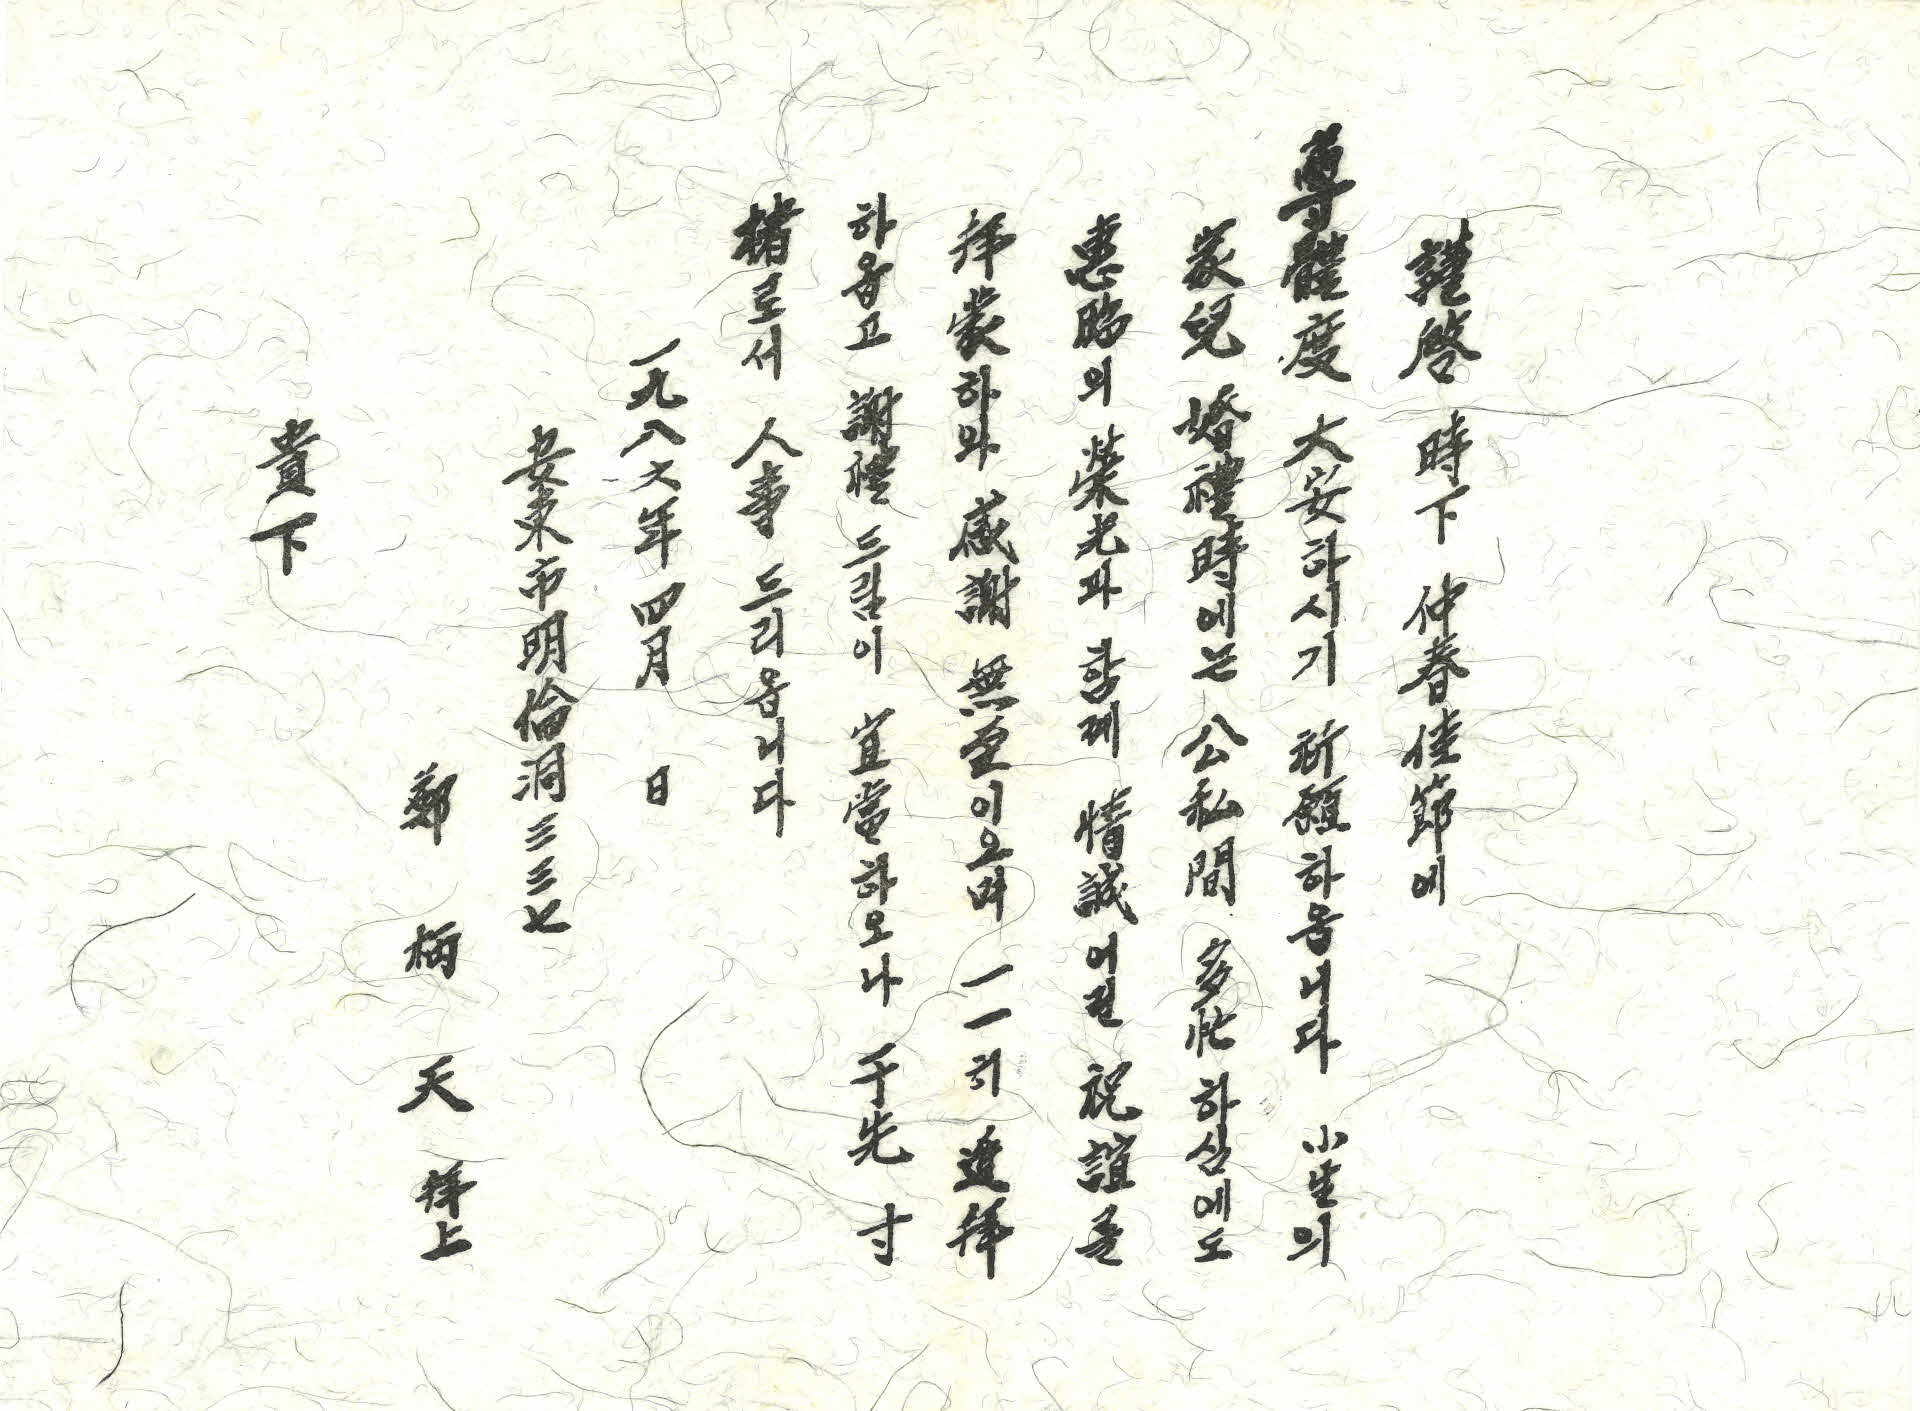 謹啓 時下 仲春佳節에
尊體度 大安하시기 祈願하옵니다 小生의
家兒 婚禮時에는 公私間 多忙하심에도
惠臨의 榮光과 함께 情誠어린 祝誼를
拜蒙하와 感謝 無至이오며 一一히 進拜
하옵고 謝禮 드림이 宜當하오나 于先 寸
楮로서 人事 드리옵니다
一九八六年 四月 日
安東市明倫洞三三七
鄭 柄 天 拜上
貴下